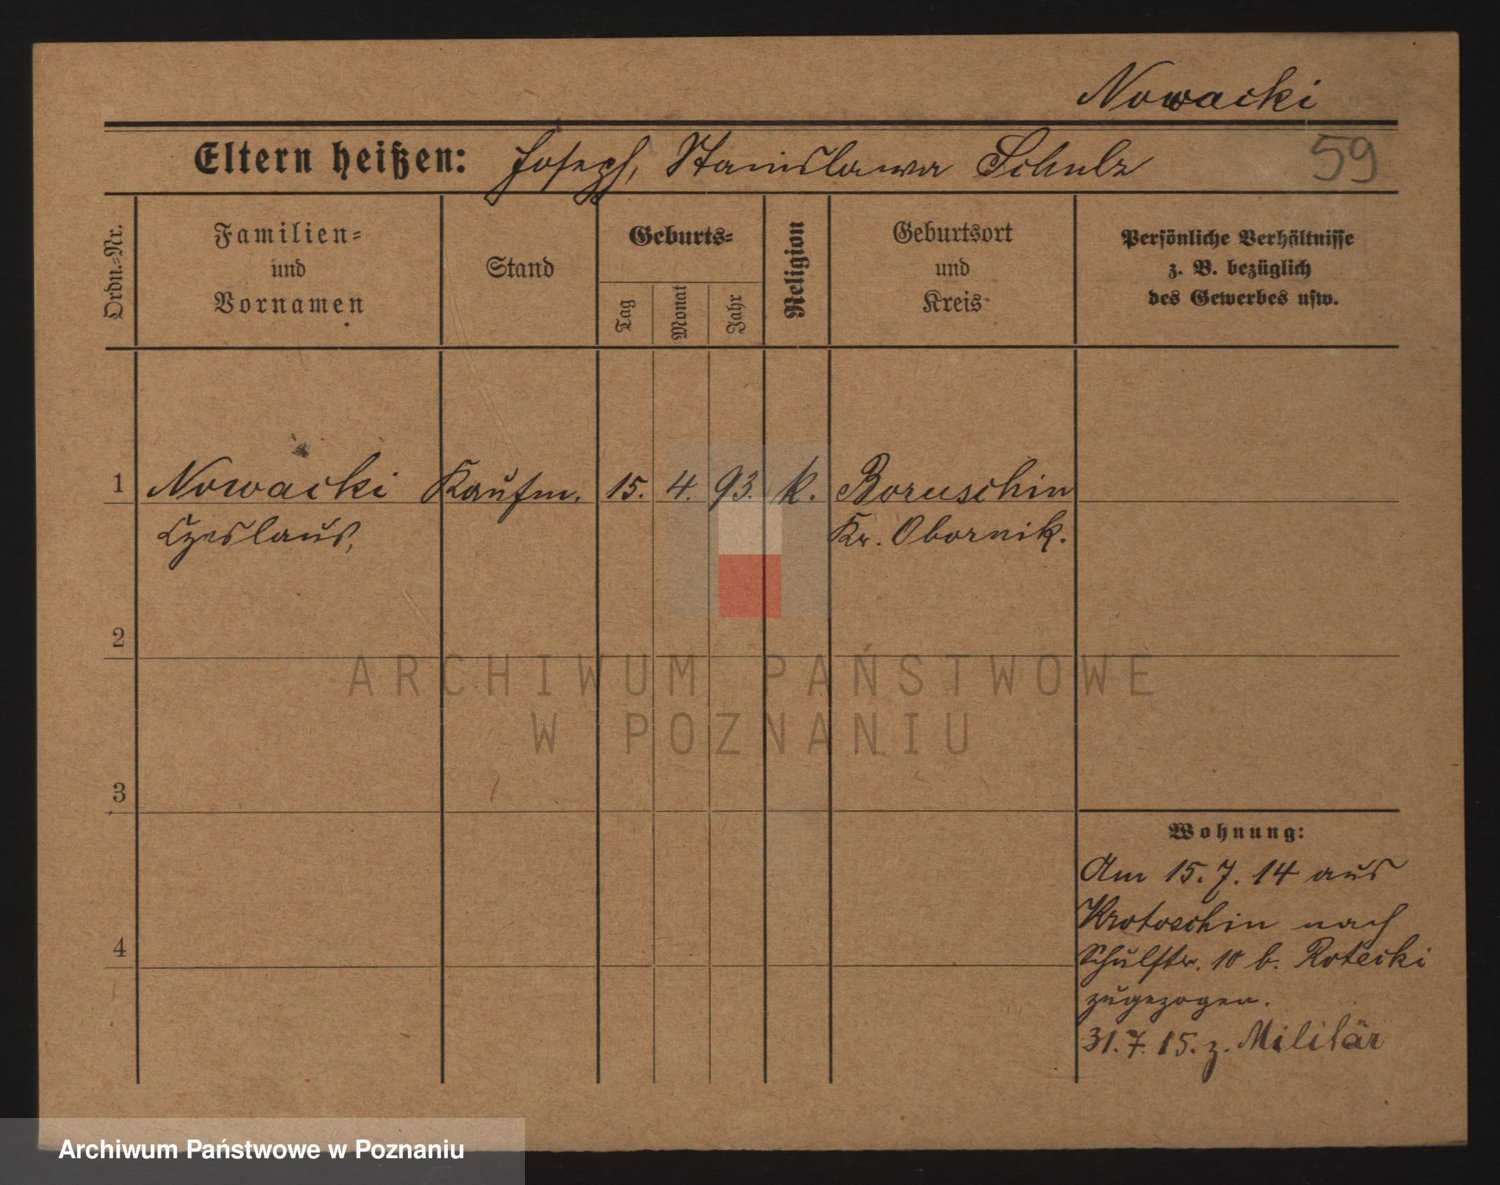 Nowacki
Eltern heißen: Joseph, Stanislawa Schulz
59
Ordn.-Nr.
Familien- und Vornamen
Stand
Geburts-
Tag
Monat
Jahr
Religion
Geburtsort und Kreis
Persönliche Verhältnisse
z. B. bezüglich
des Gewerbes usw.
1 Nowacki Kaufm. 15. 4. 93. k. Boruschin
Czeslaus, Kr. Obornik.
2
ARCHIWUM PAŃSTWOWE
W POZNANIU
3
Wohnung:
Am 15. 7. 14 aus
Krotoschin nach
4
Schulstr. 10 b. Rotecki
zugezogen.
31. 7. 15. z. Militär
Archiwum Państwowe w Poznaniu